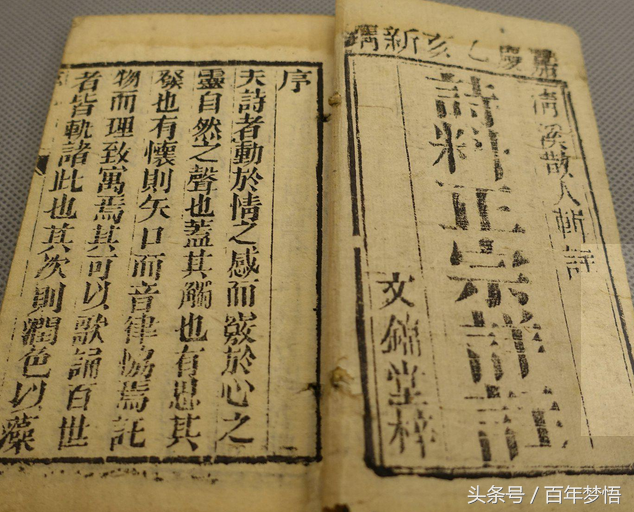 嘉慶乙亥新鐫
清溪散人
詩料正宗詳註
文錦堂梓
序
夫詩者動於情之感而發於心之
靈自然之聲也蓋其觸也有其
發也有懷則矢口而音律協焉託
物而理致寓焉其可以歌誦百世
者皆軌諸此也其次則潤色以藻
头条号／百年梦悟